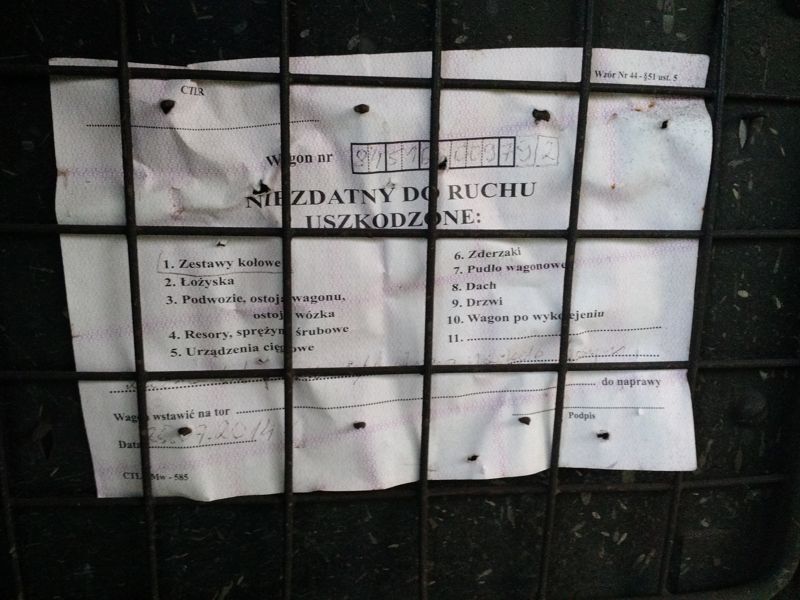 Wzór Nr 44 - §51 ust. 5
CTLR
Wagon nr
NIEZDATNY DO RUCHU
USZKODZONE:
1. Zestawy kołowe
2. Łożyska
3. Podwozie, ostoja wagonu,
ostoja wózka
4. Resory, sprężyny śrubowe
5. Urządzenia cięgłowe
6. Zderzaki
7. Pudło wagonowe
8. Dach
9. Drzwi
10. Wagon po wykolejeniu
11.
do naprawy
Wagon wstawić na tor
Podpis
Data 7.2014
CTL Mw - 585